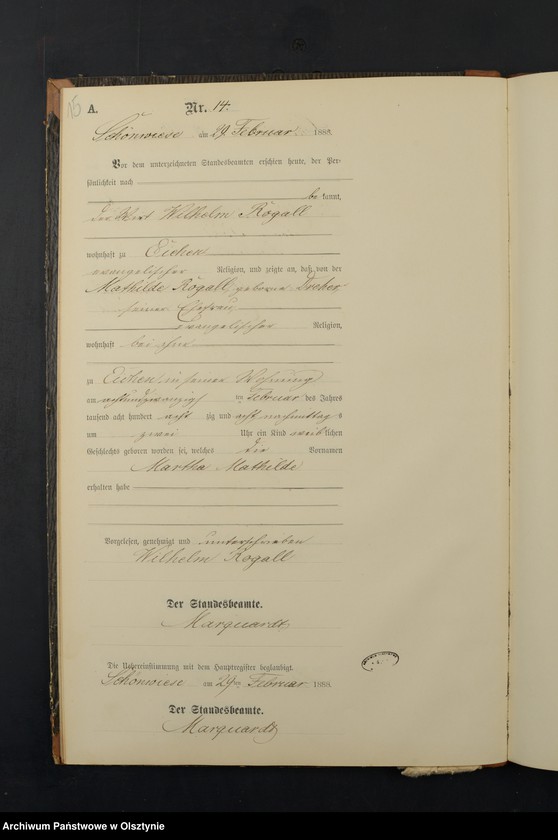 15
A.
Nr. 14.
Schönwiese am 29 Februar 1888.
Vor dem unterzeichneten Standesbeamten erschien heute, der Per-
sönlichkeit nach
be kannt,
der Wirt Wilhelm Rogall
wohnhaft zu Eichen
evangelischer Religion, und zeigte an, daß von der
Mathilde Rogall, geborene Dreher
seiner Ehefrau
evangelischer Religion,
wohnhaft bei ihm
zu Eichen, in seiner Wohnung
am achtundzwanzig Februar des Jahres
tausend acht hundert acht zig und acht nachmittag s
um zwei Uhr ein Kind weib lichen
Geschlechts geboren worden sei, welches die Vornamen
Martha Mathilde
erhalten habe
Vorgelesen, genehmigt und unterschrieben
Wilhelm Rogall
Der Standesbeamte.
Marquardt
Die Uebereinstimmung mit dem Hauptregister beglaubigt.
Schönwiese am 29 Februar 1888.
Der Standesbeamte.
Marquardt
Archiwum Państwowe w Olsztynie